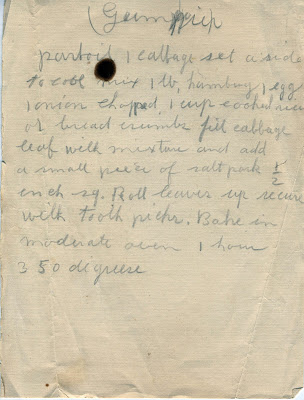 (Gumppich
parboil 1 cabbage set a side
to cool mix 1 lb, hamburg 1 egg
1 onion chopped 1 cup cooked rice
or bread crumbs fill cabbage
leaf with mixture and add
a small piece of salt pork ½
inch sq. Roll leaves up secure
with tooth picks. Bake in
moderate oven 1 hour
350 digrese